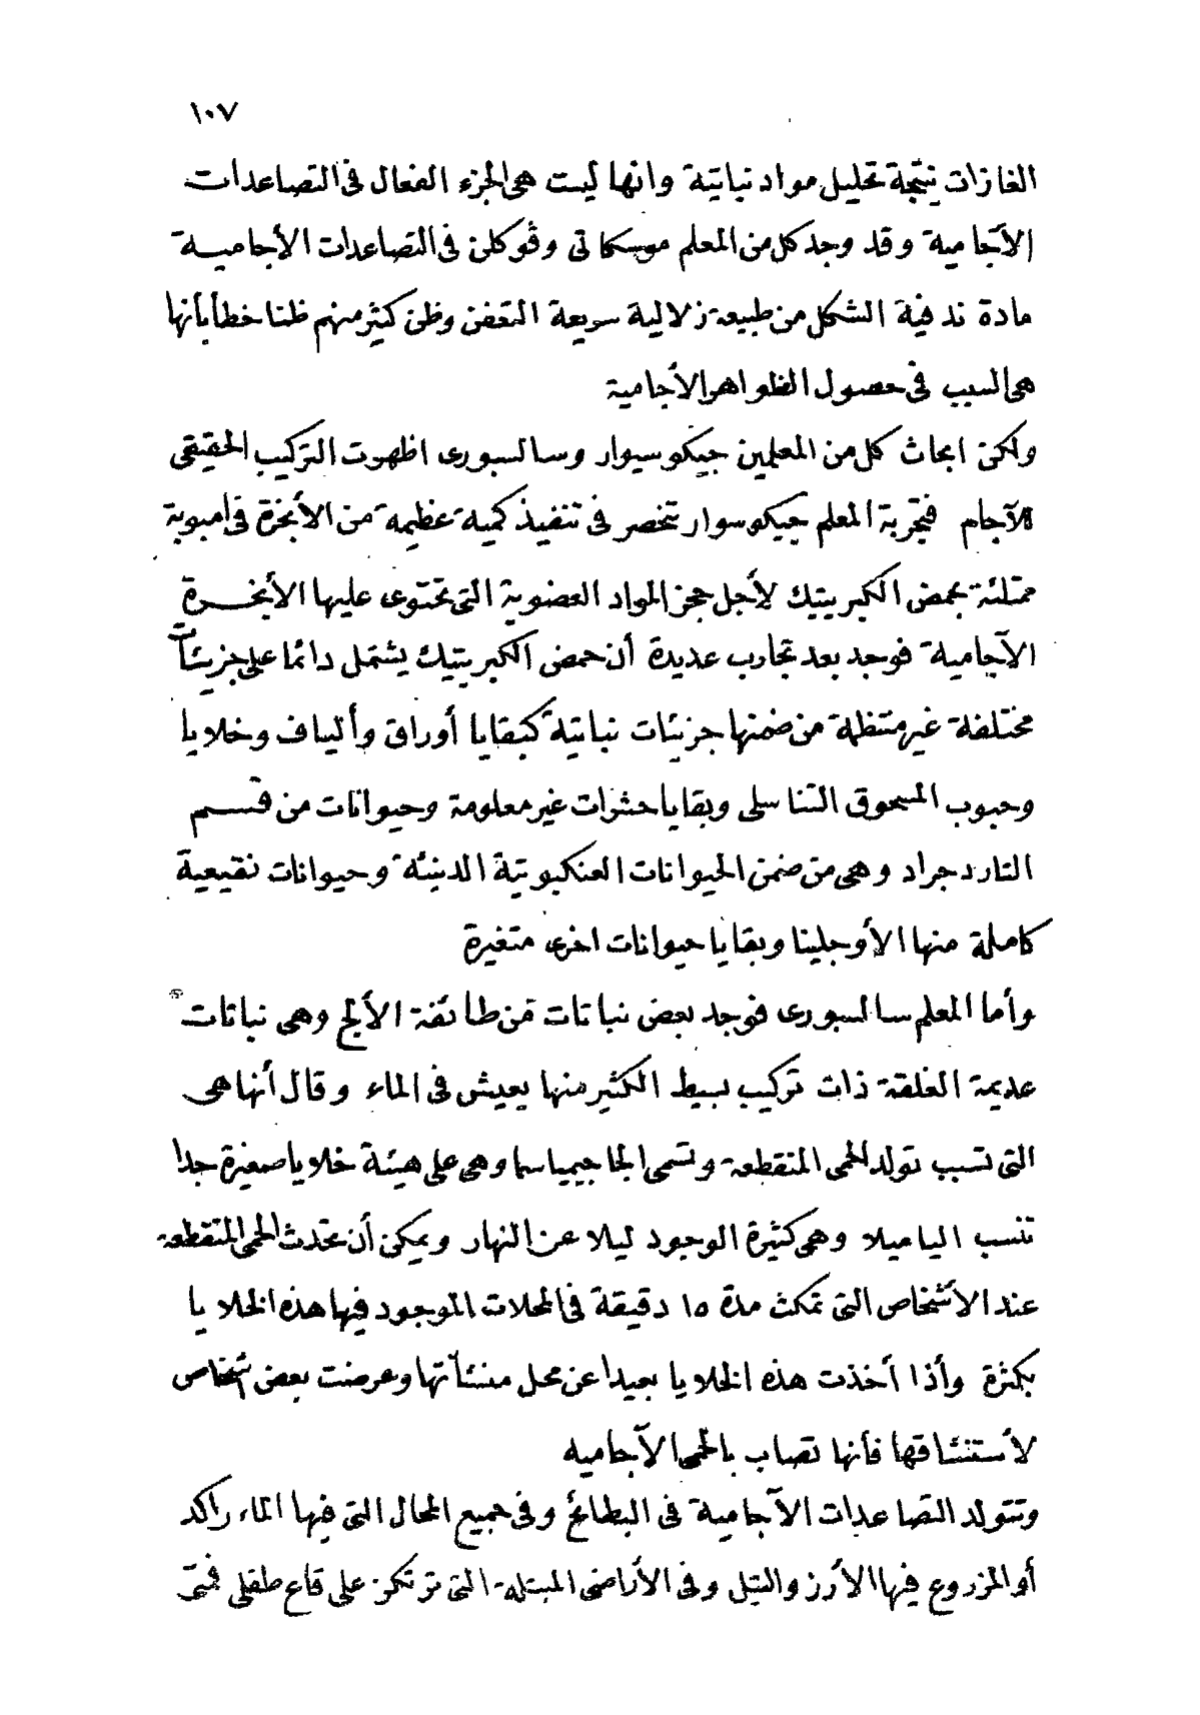 ١٠٧
الغازات نتيجة تحليل مواد نباتية وانها ليست هى الجزء الفعال فى التصاعدات
الآجامية وقد وجد كل من المعلم موسكاتى وڤوكلن فى التصاعدات الأجاميــة
مادة ندفية الشكل من طبيعة زلالية سريعة التعفن وظن كثير منهم ظنا خطأ بأنها
هى السبب فى حصول الظواهر الأجامية
ولكن ابحاث كل من المعلمين جيكوسيوار وسالسبورى اظهرت التركيب الحقيقى
للآجام فتجربة المعلم جيكوسوار تنحصر فى تنفيذ كمية عظيمة من الأبخرة فى امبوبة
ممتلئة بحمض الكبريتيك لأجل حجز المواد العضوية التى تحتوى عليها الأبخــرة
الآجامية فوجد بعد تجارب عديدة أن حمض الكبريتيك يشتمل دائما على جزيئات
مختلفة غير منتظمة من ضمنها جزيئات نباتية كبقايا أوراق وألياف وخلايا
وحبوب المسحوق التناسلى وبقايا حشرات غير معلومة وحيوانات من قسم
التاردجراد وهى من ضمن الحيوانات العنكبوتية الدنيئة وحيوانات نقيعية
كاملة منها الأوجلينا وبقايا حيوانات اخرى متغيرة
وأما المعلم سالسبورى فوجد بعض نباتات من طائفة الألج وهى نباتات
عديمة الفلقة ذات تركيب بسيط الكثير منها يعيش فى الماء وقال أنها هى
التى تسبب تولد الحمى المتقطعة وتسمى الجاجيمياسما وهى على هيئة خلايا صغيرة جدا
تنسب الياميلا وهى كثيرة الوجود ليلا عن النهار ويمكن أن تحدث الحمى المتقطعة
عند الأشخاص التى تمكث مدة ١٥ دقيقة فى المحلات الموجود فيها هذه الخلايا
بكثرة وأذا أخذت هذه الخلايا بعيدا عن محل منشأتها وعرضت بعض اشخاص
لأستنشاقها فأنها تصاب بالحمى الآجاميه
وتتولد التصاعدات الآجامية فى البطائح وفى جميع المحال التى فيها الماء راكد
أو المزروع فيها الأرز والتيل وفى الأراضى المبتلة التى ترتكن على قاع طفلى فمتى